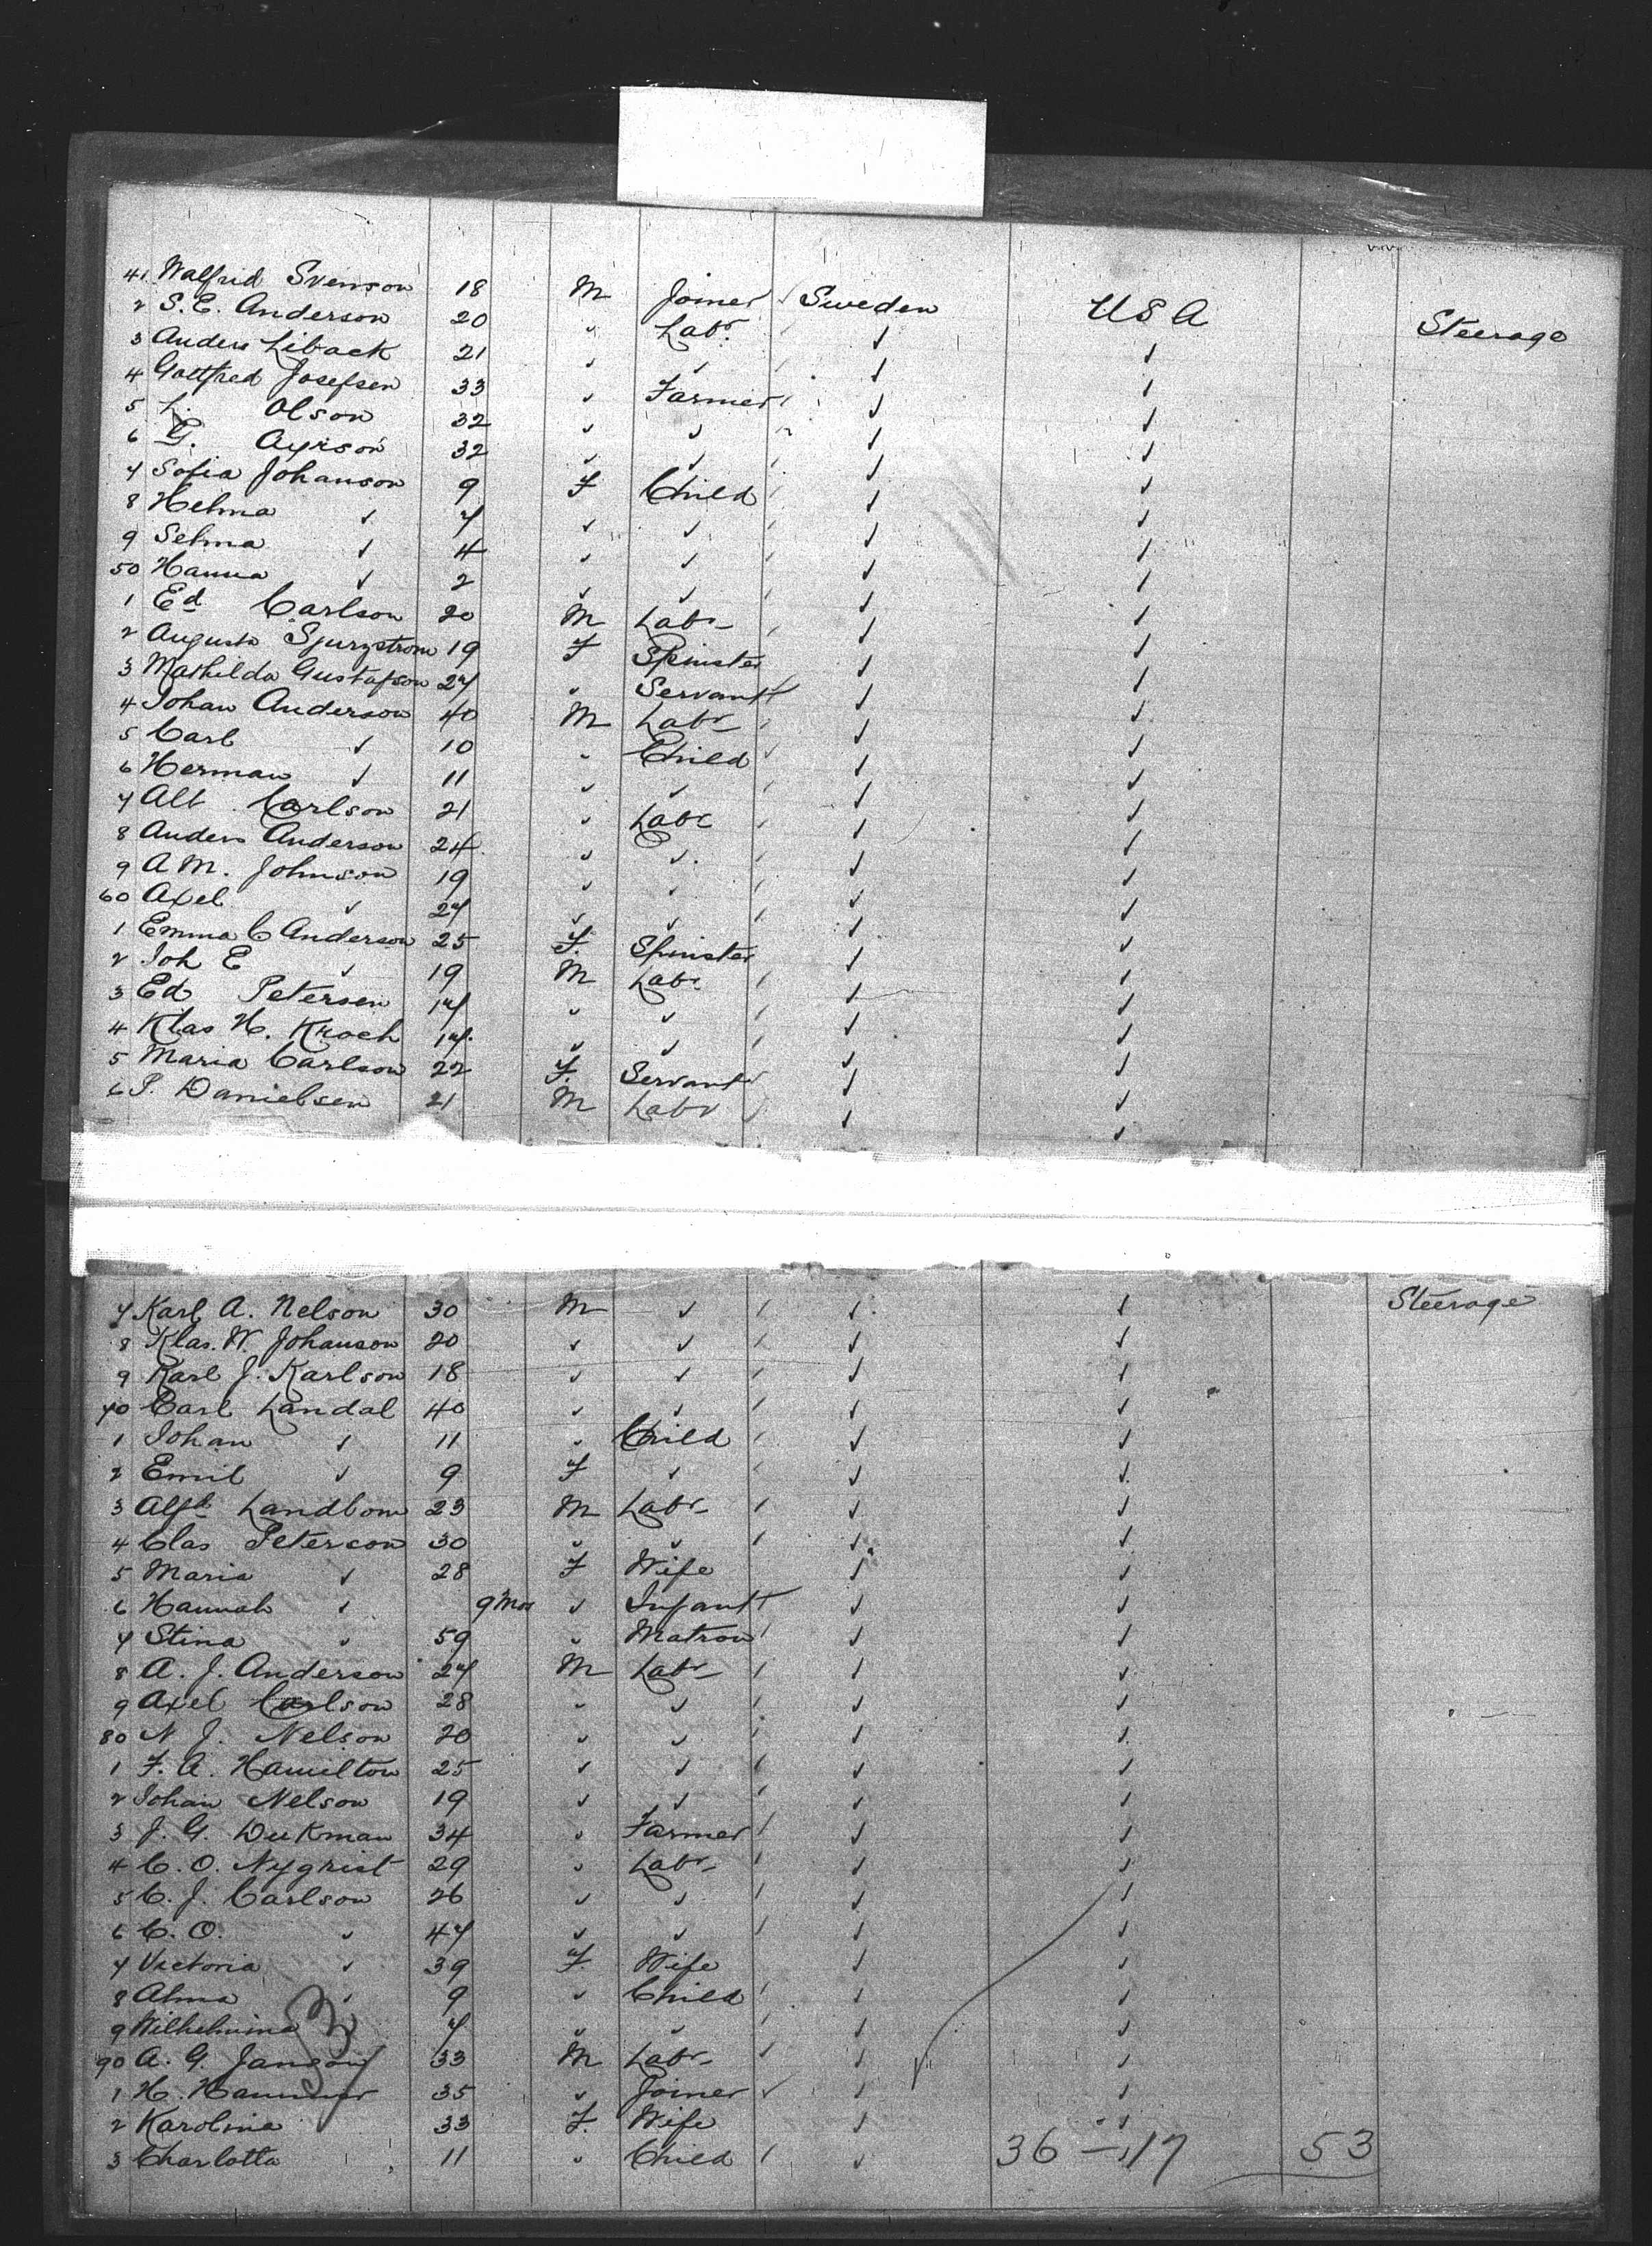 41 Walfrid Svenson 18 M Joiner ✓ Sweden USA Steerage
2 S. E. Anderson 20 " Labr. ✓ ✓
3 Anders Liback 21 " ✓ ✓ ✓
4 Gottfred Josefsen 33 " Farmer ✓ ✓
5 L. Olson 32 " ✓ ✓ ✓
6 G. 32 " ✓ ✓ ✓
7 Sofia Johanson 9 F Child ✓ ✓
8 Helma ✓ 7 ✓ ✓ ✓ ✓
9 Selma ✓ 4 ✓ ✓ ✓ ✓
50 Hanna ✓ 2 ✓ ✓ ✓ ✓
1 Ed Carlson 20 M Labr ✓ ✓
2 Augusta 19 F Spinster ✓ ✓
3 Mathilda Gustafson 27 " Servant ✓ ✓
4 Johan Anderson 40 M Labr ✓ ✓
5 Carl ✓ 10 " Child ✓ ✓ ✓
6 Herman ✓ 11 " ✓ ✓ ✓
7 Alb Carlson 21 " Labr ✓ ✓
8 Anders Anderson 24 ✓ ✓ ✓ ✓
9 A M. Johnson 19 ✓ ✓ ✓ ✓
60 Axel ✓ 27 ✓ ✓ ✓ ✓
1 Emma C Anderson 25 F. Spinster ✓ ✓
2 Joh E ✓ 19 M Labr ✓ ✓
3 Ed Petersen 17 " ✓ ✓ ✓
4 Klas H. Kroch 17 ✓ ✓ ✓ ✓
5 Maria Carlson 22 F. Servant ✓ ✓
6 P. Danielsen 21 M Labr ✓ ✓
7 Karl A. Nelson 30 M ✓ ✓ ✓ Steerage
8 Klas. W. Johanson 20 ✓ ✓ ✓ ✓
9 Karl J. Karlson 18 ✓ ✓ ✓ ✓
70 Carl Landal 40 ✓ ✓ ✓ ✓
1 Johan ✓ 11 ✓ Child ✓ ✓
2 Emil ✓ 9 F ✓ ✓ ✓
3 Alfd Landbom 23 M Labr ✓ ✓
4 Clas Peterson 30 ✓ ✓ ✓ ✓
5 Maria ✓ 28 F Wife ✓ ✓
6 Hannah ✓ 9 Mos ✓ Infant ✓ ✓
7 Stina ✓ 59 ✓ Matron ✓ ✓
8 A. J. Anderson 27 M Labr ✓ ✓
9 Axel Carlson 28 " ✓ ✓ ✓
80 N J. Nelson 20 ✓ ✓ ✓ ✓
1 F. A. Hamilton 25 ✓ ✓ ✓ ✓
2 Johan Nelson 19 ✓ ✓ ✓ ✓
3 J. G. 34 ✓ Farmer ✓ ✓
4 C. O. Nygrist 29 ✓ Labr ✓ ✓
5 C. J. Carlson 26 ✓ ✓ ✓ ✓
6 C. O. ✓ 47 ✓ ✓ ✓ ✓
7 Victoria ✓ 39 F. Wife ✓ ✓
8 Alma ✓ 9 ✓ Child ✓ ✓
9 Wilhelmina 7 ✓ ✓ ✓ ✓
90 A. G. Janson 33 M Labr ✓ ✓
1 H. Hammar 35 ✓ Joiner ✓ ✓ ✓
2 Karolina 33 F. Wife ✓ ✓
3 Charlotta 11 ✓ Child ✓ ✓
36 – 17 53